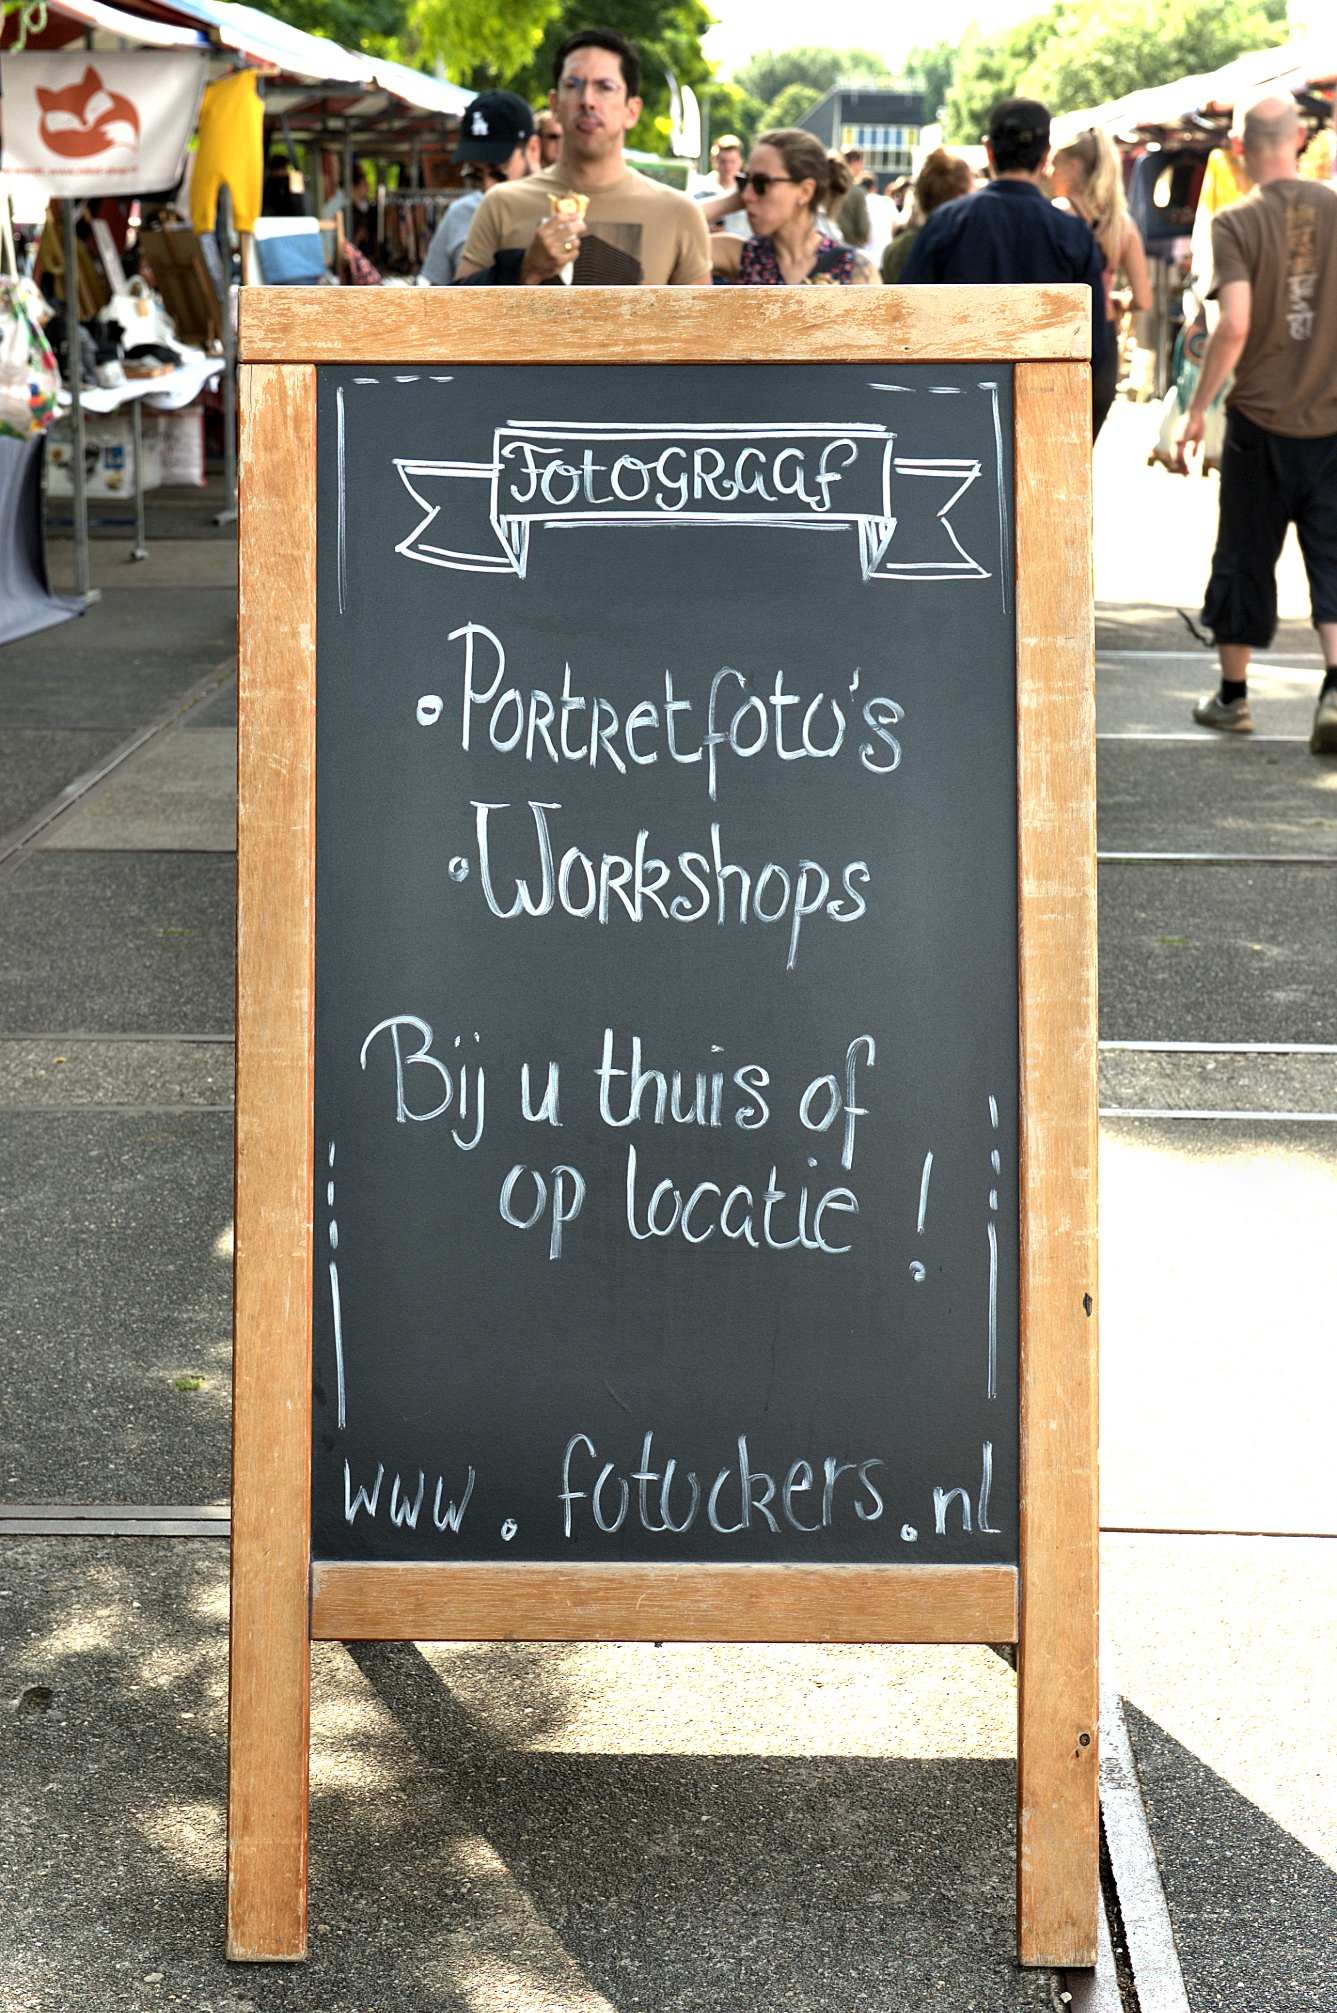 FotoGRaaf
• Portretfoto's
• Workshops
Bij u thuis of
op locatie !
www. fotockers.nl